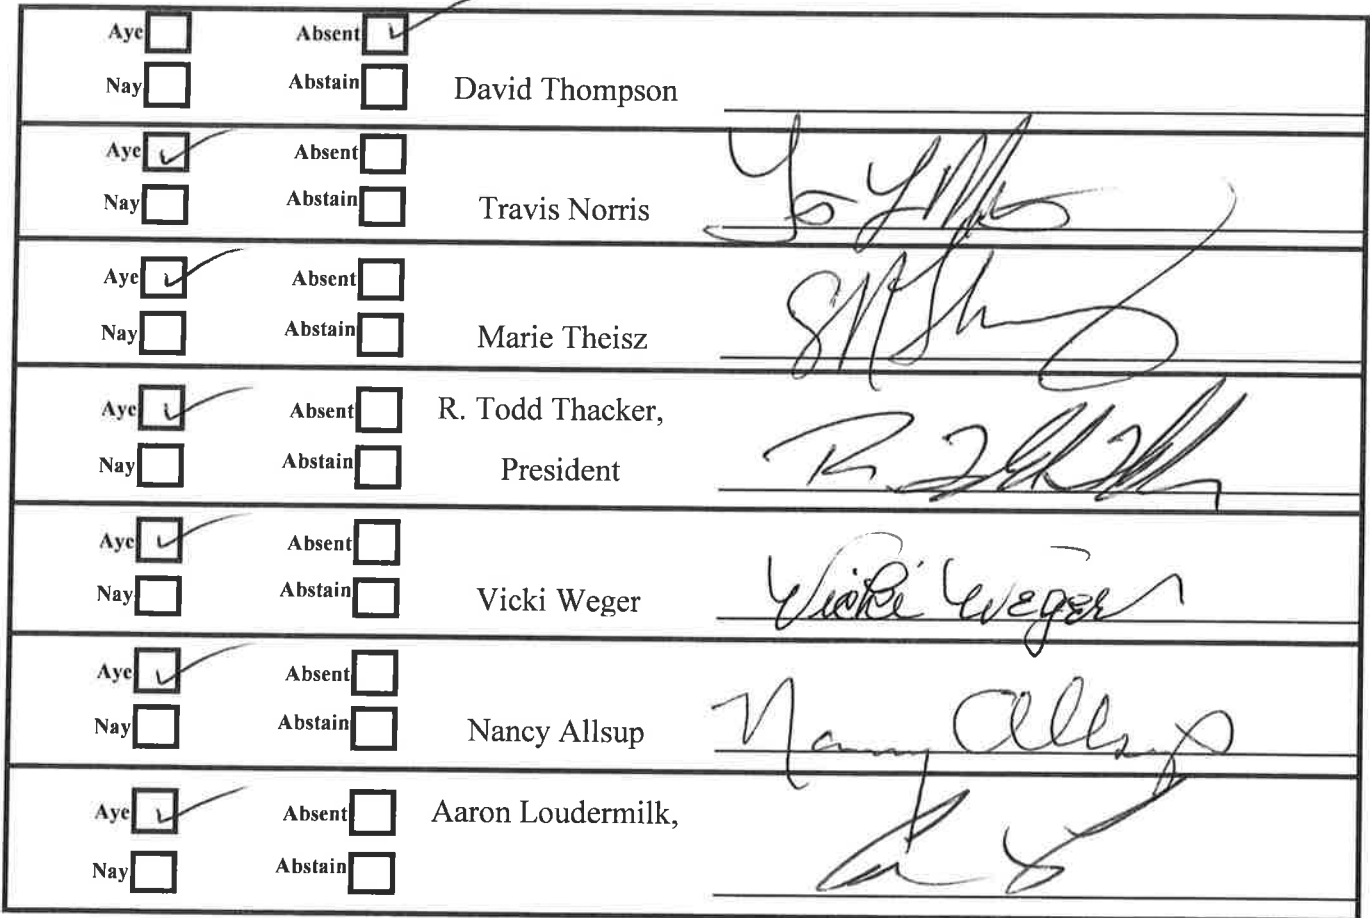 Aye Absent
Nay Abstain David Thompson
Aye Absent
Nay Abstain Travis Norris
Aye Absent
Nay Abstain Marie Theisz
Aye Absent R. Todd Thacker,
Nay Abstain President
Aye Absent
Nay Abstain Vicki Weger Vicki Weger
Aye Absent
Nay Abstain Nancy Allsup Nancy Allsup
Aye Absent Aaron Loudermilk,
Nay Abstain